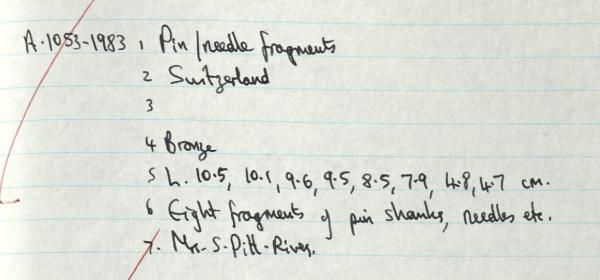 A.1053-1983 1 Pin/needle fragments
2 Switzerland
3
4 Bronze
5 L. 10.5, 10.1, 9.6, 9.5, 8.5, 7.9, 4.8, 4.7 cm.
6 Eight fragments of pin shanks, needles etc.
7. Mrs. S. Pitt-Rivers.